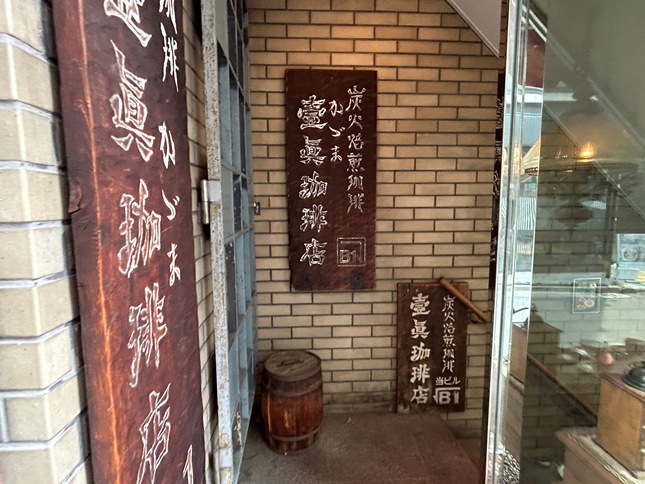 珈琲
かづま
眞珈琲店
炭火焙煎珈琲
かづま
壹眞珈琲店
B1
炭火焙煎珈琲
壹眞珈琲店
当ビル
B1